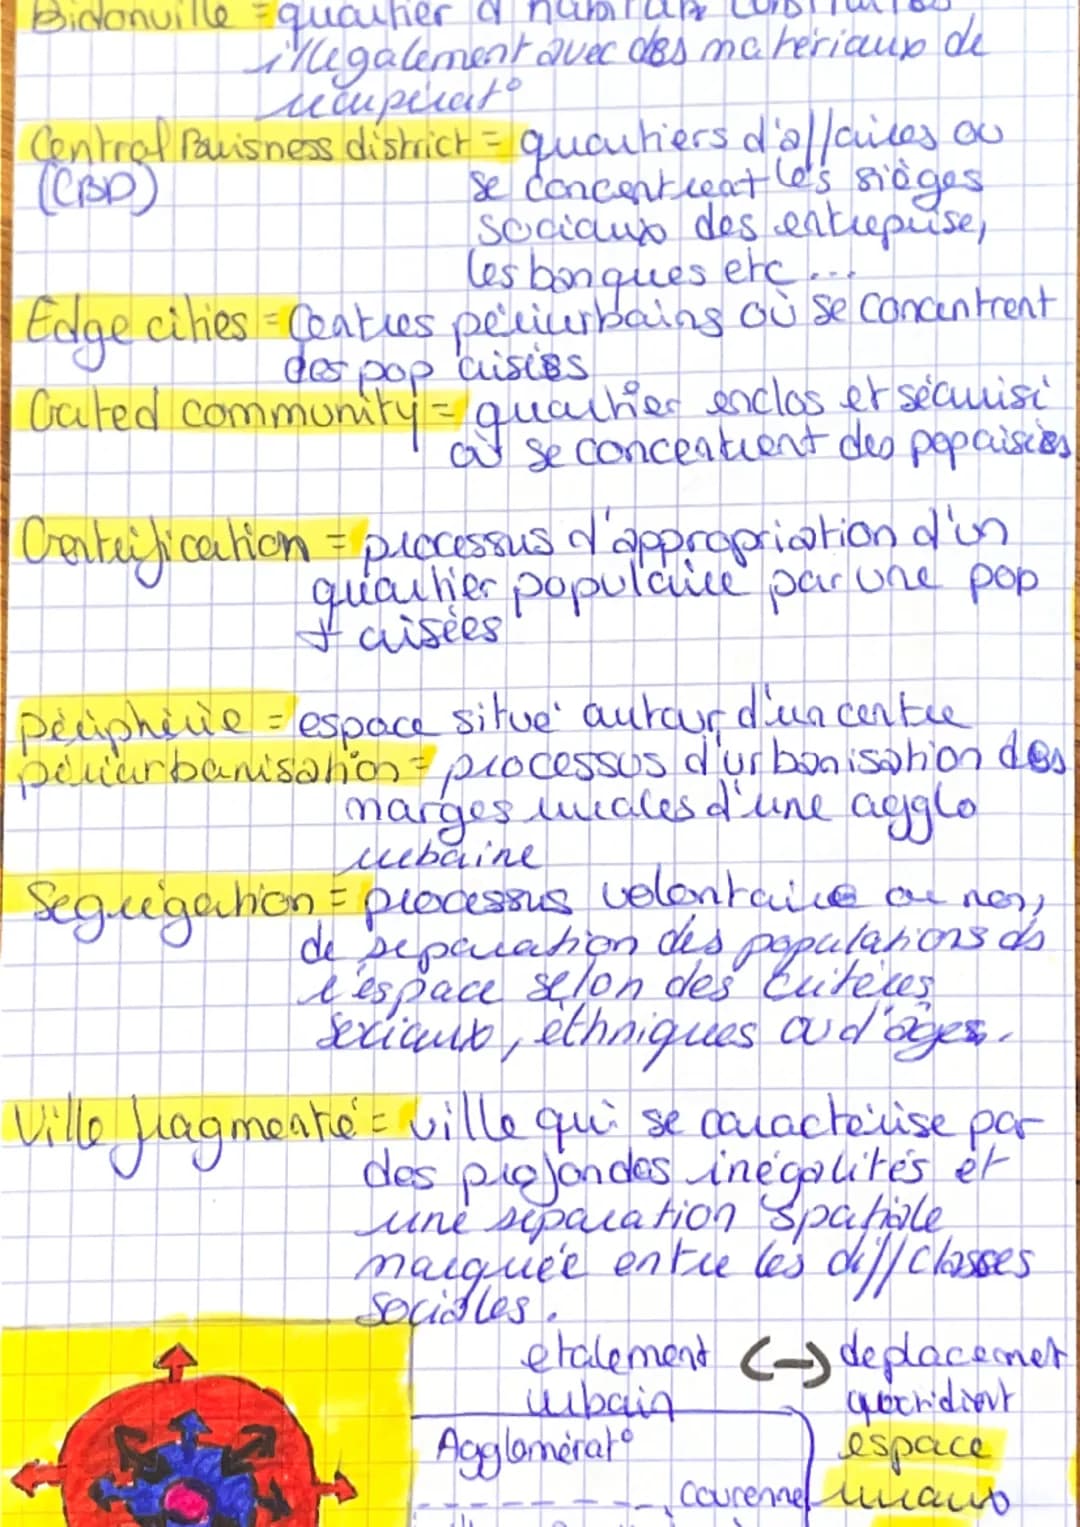 Bidonville = quartier d'habitats construites
illégalement avec des matériaux de
récupérat°
Central Buisness district = quartiers d'affaires où
(CBD) se concentrent les sièges
sociaux des entreprise,
les banques etc...
Edge cities = Centres périurbains où se concentrent
des pop aisées
Gated community = quartier enclos et sécurisé
où se concentrent des pop aisées
Gentrification = processus d'appropriation d'un
quartier populaire par une pop
+ aisées
périphérie = espace situé autour d'un centre
périurbanisation = processus d'urbanisation des
marges rurales d'une agglo
urbaine
Segrégation = processus volontaire ou non,
de séparation des populations ds
l'espace selon des critères
sociaux, éthniques ou d'âges.
Ville fragmenté = ville qui se caractérise par
des profondes inégalités et
une séparation spatiale
marquée entre les diff classes
sociales.
etalement <-> deplacemet
urbain quotidient
Agglomérat° espace
couronne ruraux